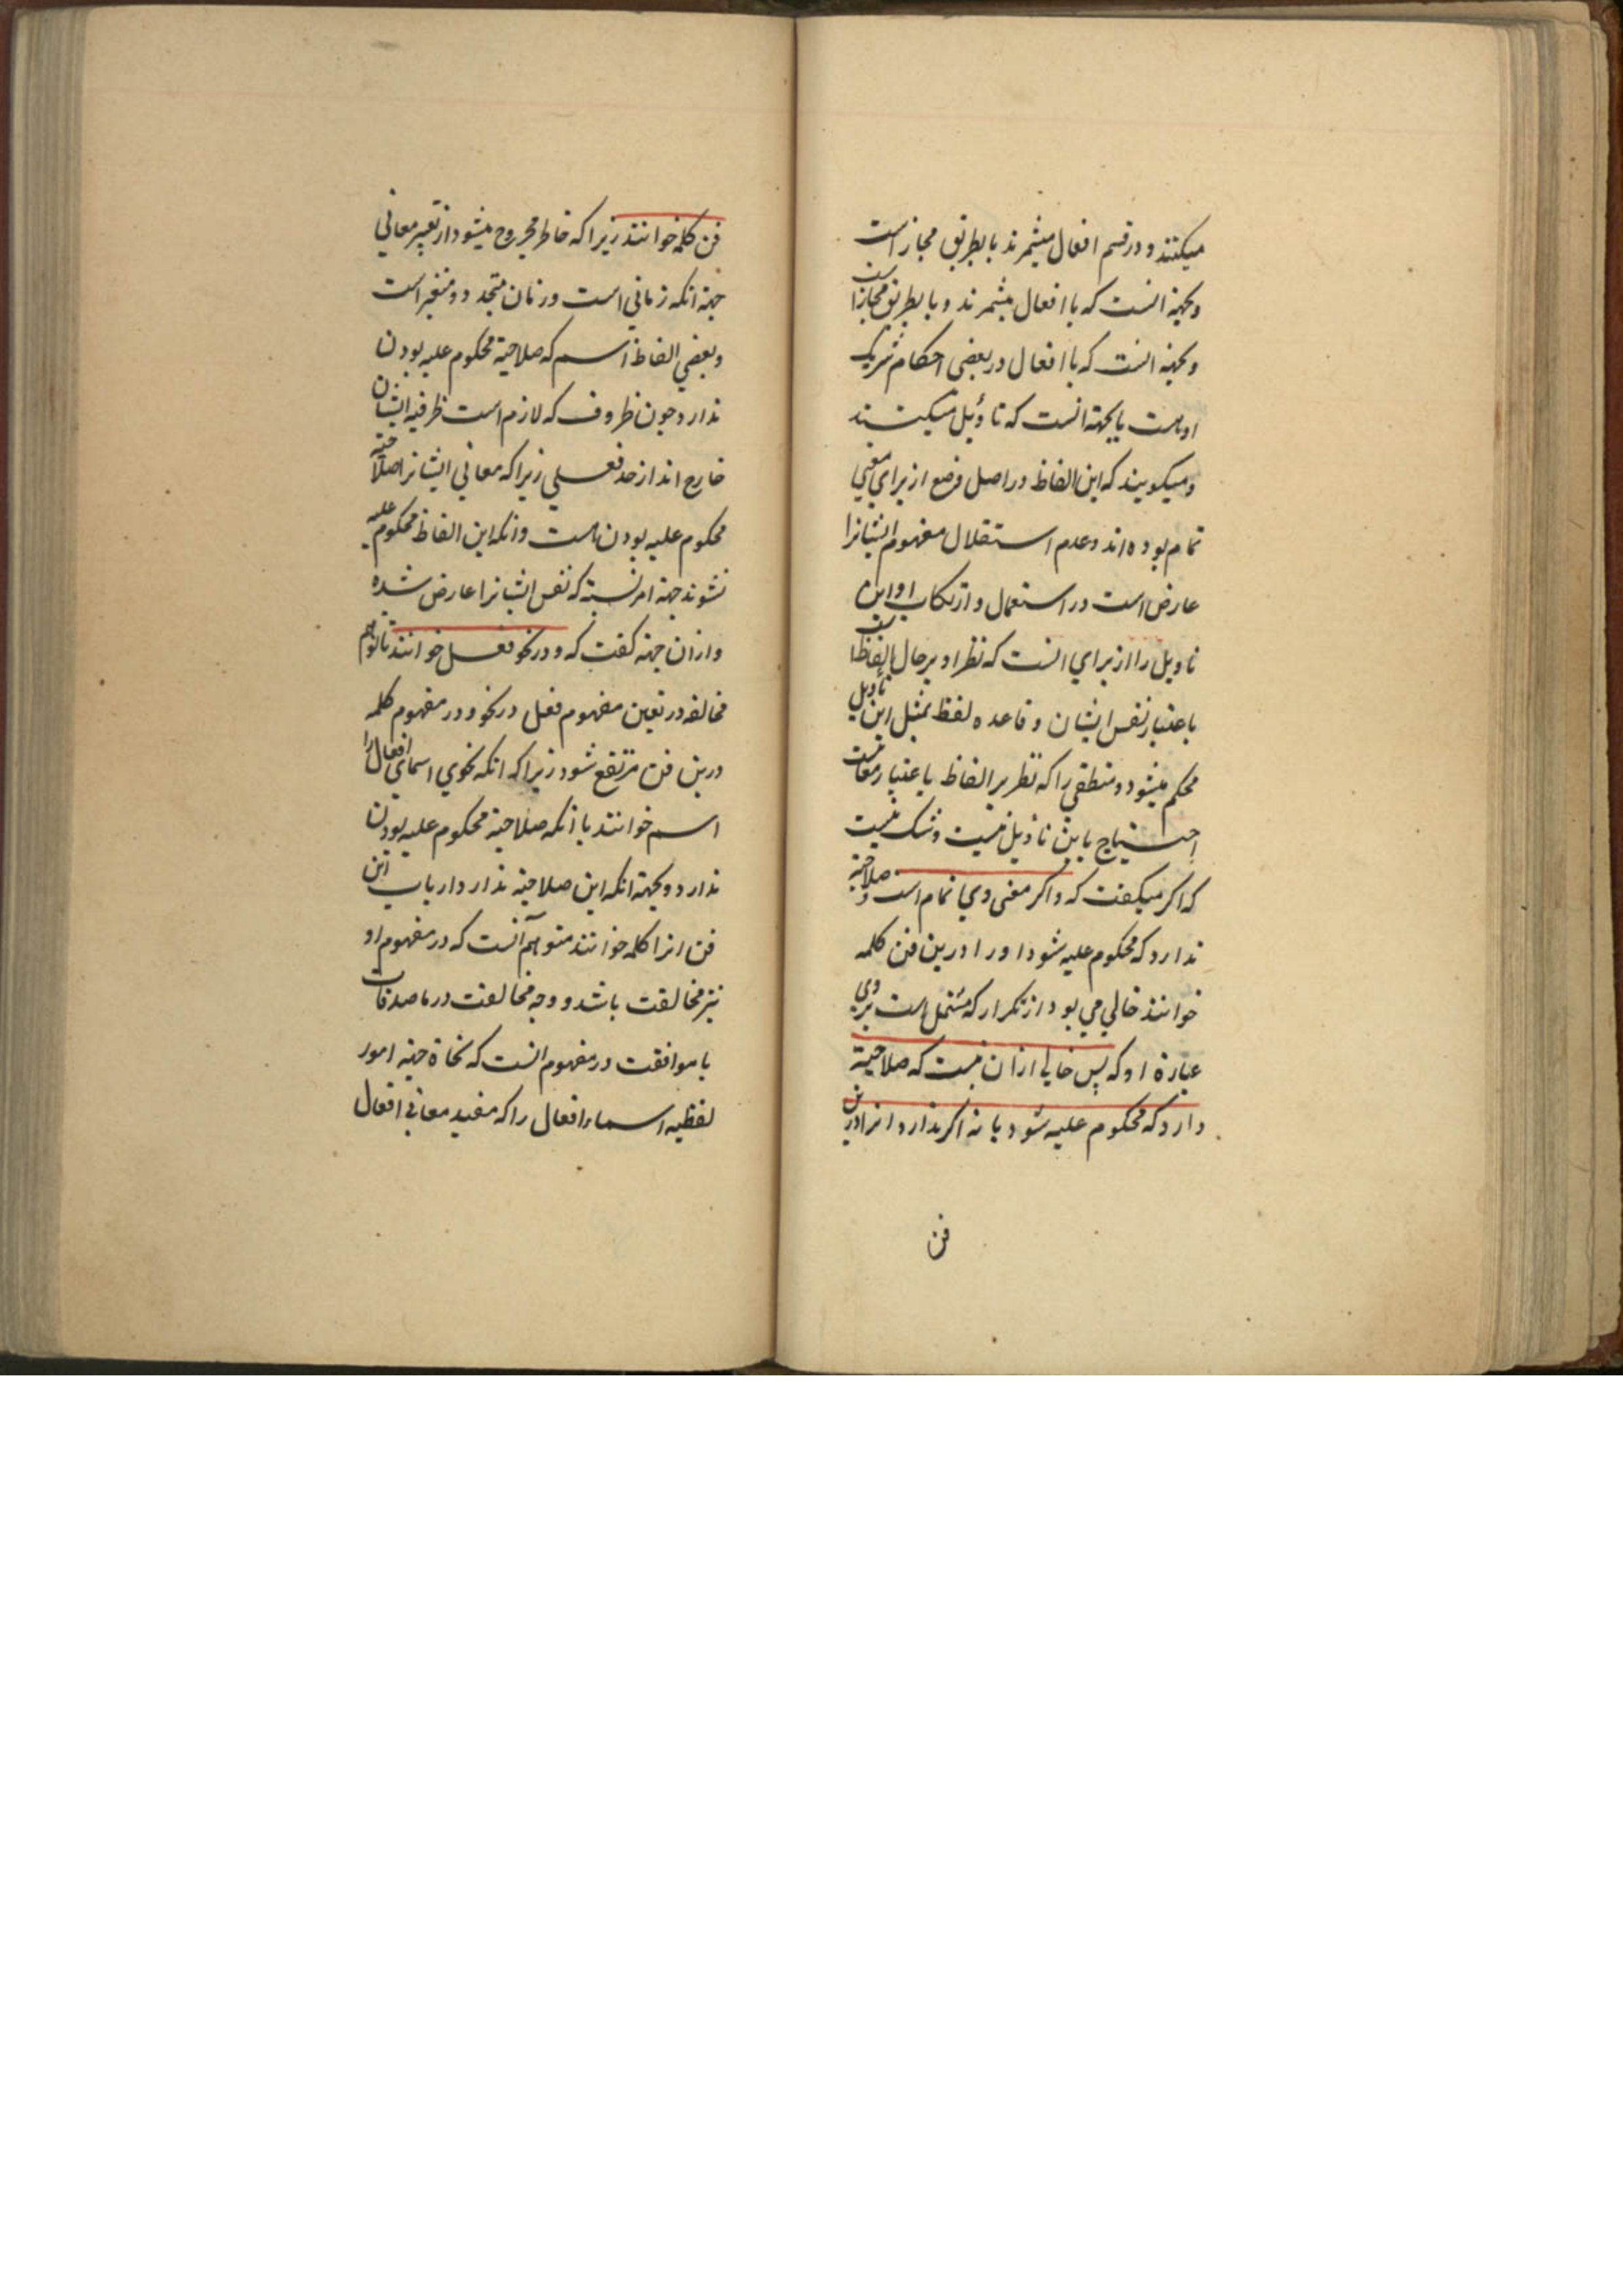 میکنند و در قسم افعال میشمرند یا بطریق مجاز است
و بجهة انست که با افعال میشمرند و یا بطریق مجاز است
و بجهة انست که با افعال در بعضی احکام شریک
اوست یا بجهة انست که تأویل میکنند
و میکویند که این الفاظ در اصل وضع از برای معنی
تمام بوده اند و عدم استقلال مفهوم ایشانرا
عارض است در استعمال و ارتکاب او این
تاویل را از برای انست که نظر او بر حال الفاظ است
باعتبار نفس ایشان و قاعده لفظ بمثل این تأویل
محکم میشود و منطقی را که نظر بر الفاظ باعتبار معانیست
احتیاج باین تأویل نیست و شک نیست
که اکر میکفت که و اکر معنی وی تمام است و صلاحیة
ندارد که محکوم علیه شود او را درین فن کلمه
خوانند خالی می بود از تکرار که مشتمل است بر وی
عبارة او که پس خالی ازان نیست که صلاحیة
دارد که محکوم علیه شود یا نه اکر ندارد انرا درین
فن
فن کلمه خوانند زیرا که خاطر مجروح میشود از تعبیر معانی
جهة انکه زمانی است و زمان متجدد و متغیر است
و بعضی الفاظ اسم که صلاحیة محکوم علیه بودن
ندارد چون ظروف که لازم است ظرفیه ایشان
خارج اند از حد فعلی زیرا که معانی ایشانرا صلاحیة
محکوم علیه بودن هست و انکه این الفاظ محکوم علیه
نشوند جهة امریست که نفس ایشانرا عارض شده
و ازان جهة کفت که و در نحو فعل خوانند تا توهم
مخالفه در تعین مفهوم فعل در نحو و در مفهوم کلمه
درین فن مرتفع شود زیرا که انکه نحوی اسمای افعال را
اسم خوانند با انکه صلاحیة محکوم علیه بودن
ندارد و بجهة انکه این صلاحیة ندارد ارباب این
فن انرا کلمه خوانند متوهم آنست که در مفهوم او
نیز مخالفت باشد و وجه مخالفت در ماصدقات
با موافقت در مفهوم انست که نحاة جهة امور
لفظیه اسماء افعال را که مفید معانی افعال